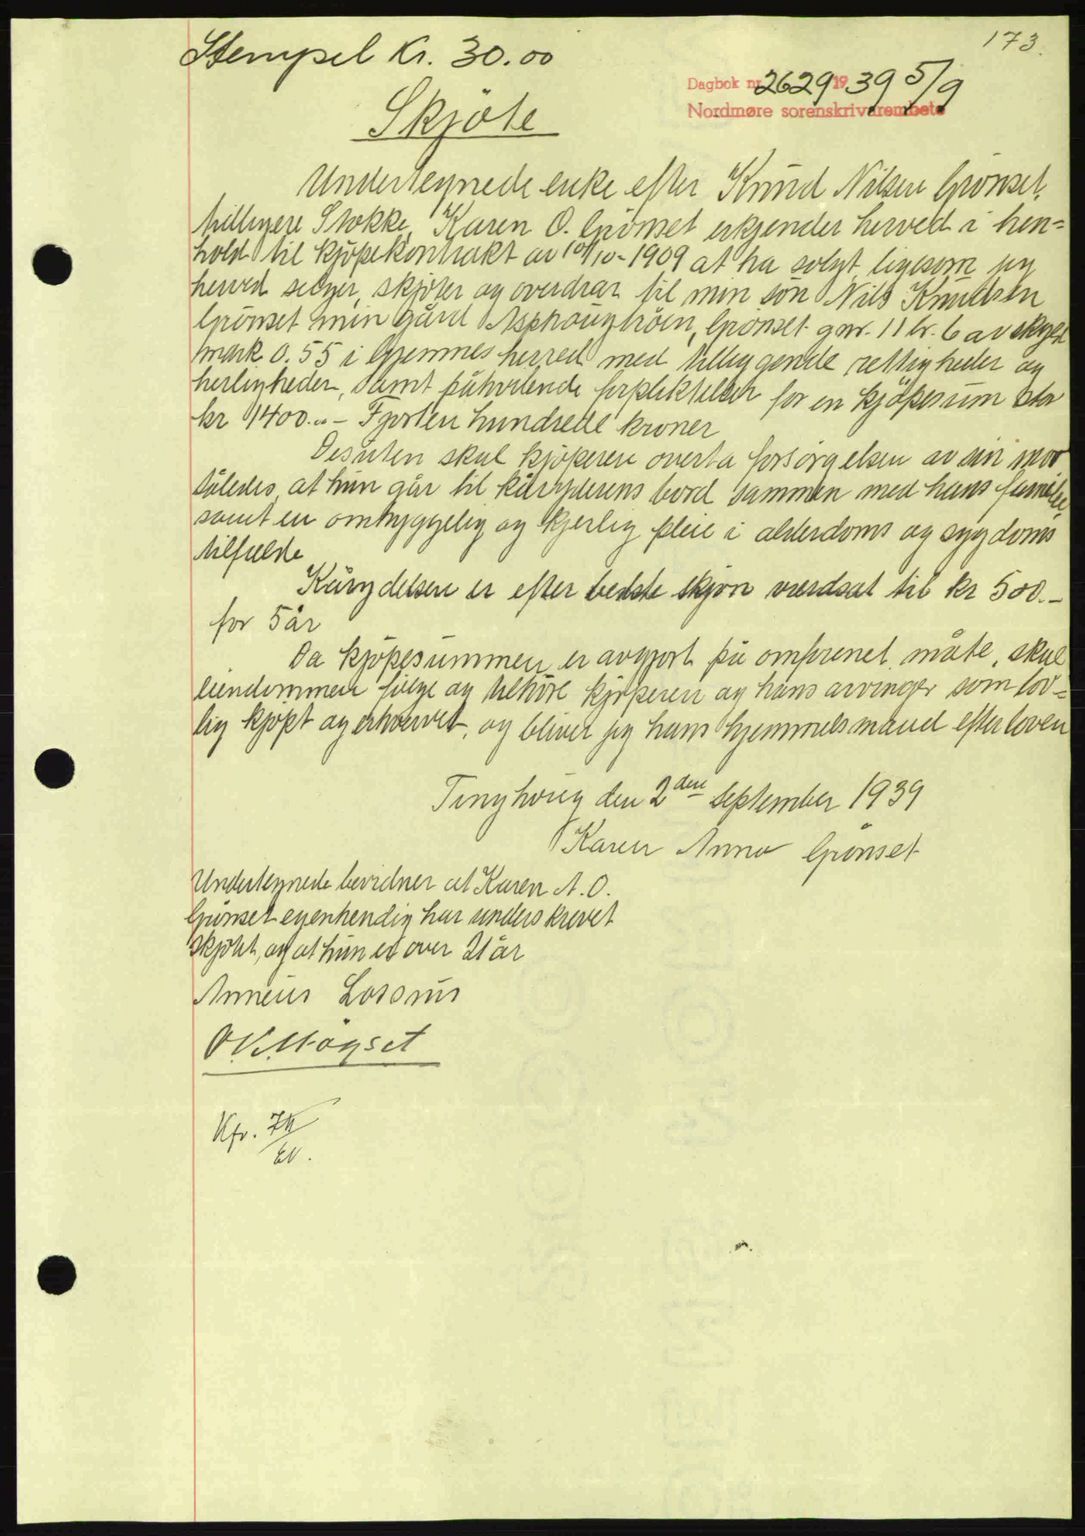 173.
Stempel Kr. 30.00
Dagbok nr. 2629 1939 5/9
Nordmøre sorenskrivarembete
Skjöte
Undertegnede enke efter Knud Nilsen Grönset,
tidligere Stokke, Karen O. Grönset erkjender herved i hen=
hold til kjöpekontrakt av 10/10-1909 at ha solgt ligesom jeg
herved selger, skjöter og overdrar til min sön Nils Knudsen
Grönset min gård Asphaugtröen, Grönset gnr. 11 br. 6 av skyld
mark 0.55 i Gjemnes herred med tilliggende rettigheder og
herligheder, samt påhvilende forpliktelser for en kjöpesum stor
kr 1400.00 – Fjorten hundrede kroner
Desuten skal kjöperen overta forsörgelsen av sin mor
således, at hun går til kåryderens bord sammen med hans familie,
samt en omhyggelig og kjerlig pleie i alderdoms og sygdoms
tilfælde
Kårydelsen er efter bedste skjön værdsat til kr 500.–
for 5 år
Da kjöpesummen er avgjort på omforenet måte, skal
eiendommen fölge og tilhöre kjöperen og hans arvinger som lov=
lig kjöpt og erhvervet, og bliver jeg hans hjemmelsmand efter loven
Tinghaug den 2den September 1939
Karen Anna Grönset
Undertegnede bevidner at Karen A. O.
Grönset egenhendig har underskrevet
skjötet, og at hun er over 21 år
Anneus Lossius
O. K. Högset
Kfr.